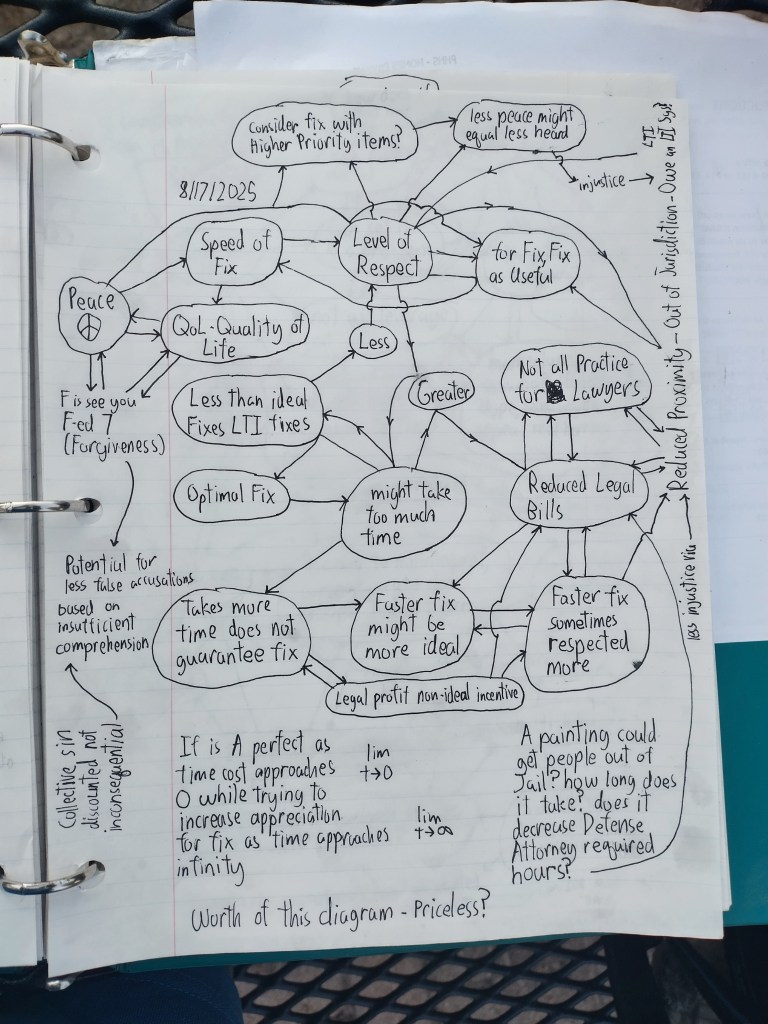 Consider fix with
Higher Priority items?
less peace might
equal less heard
injustice
LTI
Reduced Proximity - Out of Jurisdiction - Owe an
8/17/2025
Speed of
Fix
Level of
Respect
for Fix, Fix
as Useful
Peace
QoL - Quality of
Life
Less
Greater
Not all Practice
for Lawyers
F is see you
F-ed 7
(Forgiveness)
Less than ideal
Fixes LTI fixes
Optimal Fix
might take
too much
time
Reduced Legal
Bills
less injustice via
Potential for
less false accusations
based on
insufficient
comprehension
Takes more
time does not
guarantee fix
Faster fix
might be
more ideal
Faster fix
sometimes
respected
more
Legal profit non-ideal incentive
Collective sin
discounted not
inconsequential
If is A perfect as
time cost approaches
0 while trying to
increase appreciation
for fix as time approaches
infinity
lim
t→0
lim
t→∞
A painting could
get people out of
Jail? how long does
it take? does it
decrease Defense
Attorney required
hours?
Worth of this diagram - Priceless?